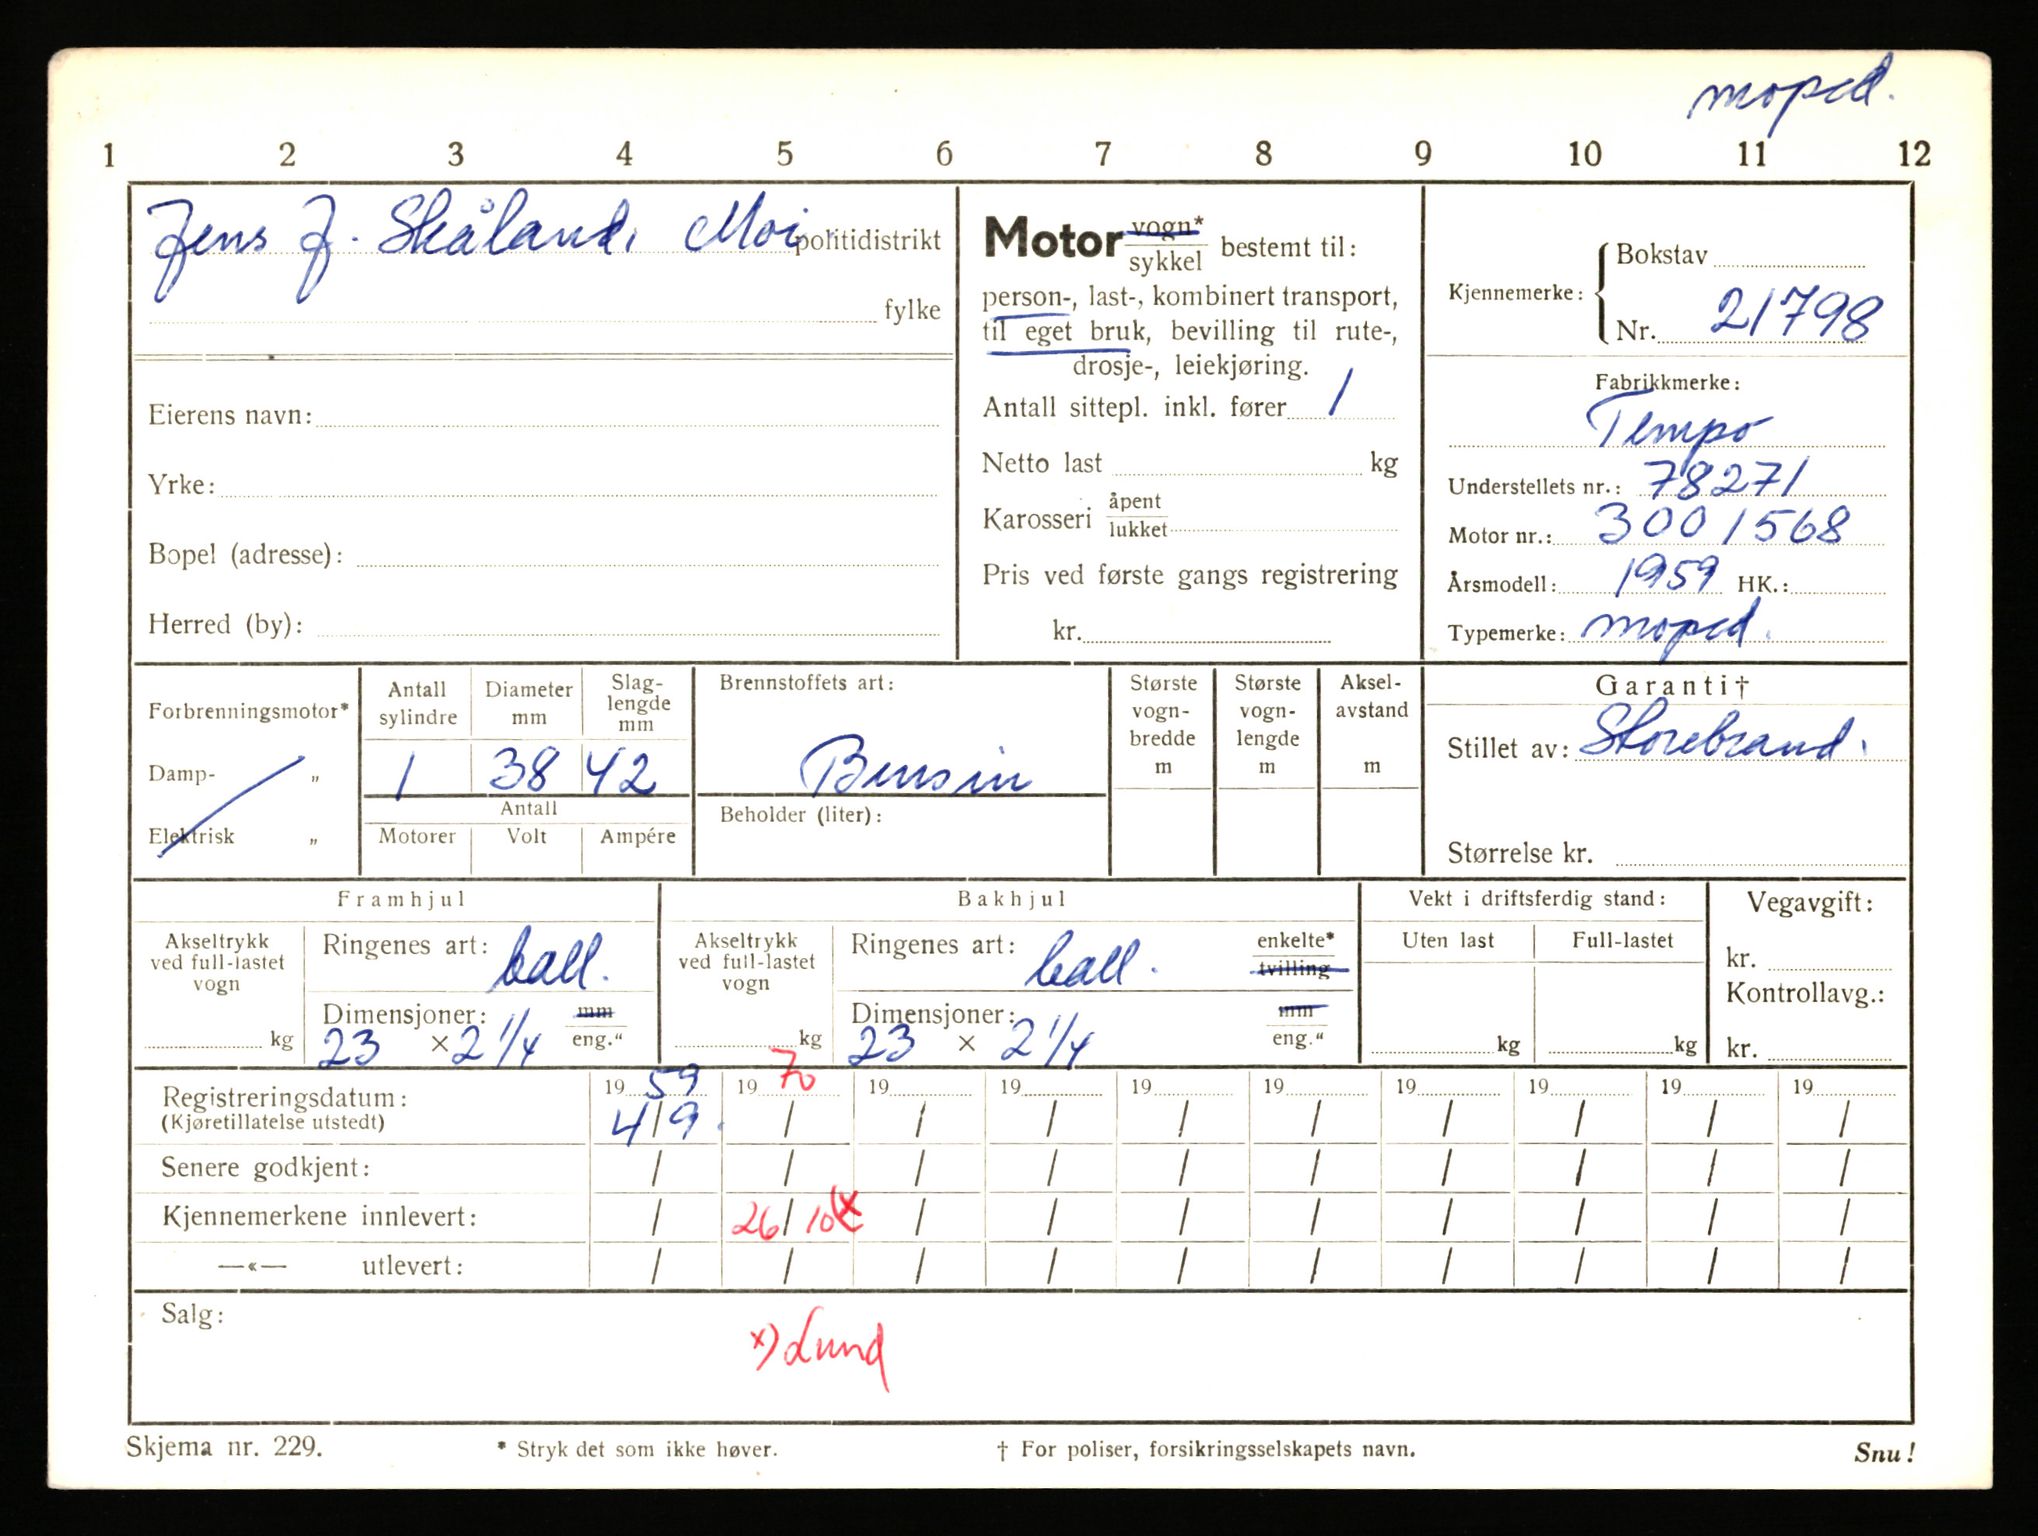 moped.
1 2 3 4 5 6 7 8 9 10 11 12
Jens J. Skåland, Moi politidistrikt
fylke
Eierens navn:
Yrke:
Bopel (adresse):
Herred (by):
Motor vogn* / sykkel bestemt til:
person-, last-, kombinert transport,
til eget bruk, bevilling til rute-,
drosje-, leiekjøring.
Antall sittepl. inkl. fører 1
Netto last kg
Karosseri åpent / lukket
Pris ved første gangs registrering
kr.
Kjennemerke: Bokstav
Nr. 21798
Fabrikkmerke:
Tempo
Understellets nr.: 78271
Motor nr.: 3001568
Årsmodell: 1959 HK.:
Typemerke: moped.
Forbrenningsmotor*
Damp- „
Elektrisk „
Antall sylindre Diameter mm Slag-lengde mm
1 38 42
Antall
Motorer Volt Ampére
Brennstoffets art:
Bensin
Beholder (liter):
Største vogn-bredde m
Største vogn-lengde m
Aksel-avstand m
Garanti†
Stillet av: Storebrand.
Størrelse kr.
Framhjul
Akseltrykk ved full-lastet vogn
kg
Ringenes art: ball.
Dimensjoner: mm
23 × 2 1/4 eng."
Bakhjul
Akseltrykk ved full-lastet vogn
kg
Ringenes art: ball. enkelte* tvilling
Dimensjoner: mm
23 × 2 1/4 eng."
Vekt i driftsferdig stand:
Uten last Full-lastet
kg kg
Vegavgift:
kr.
Kontrollavg.:
kr.
Registreringsdatum: 19 59 19 70 19 19 19 19 19 19 19 19
(Kjøretillatelse utstedt) 4/9. / / / / / / / / /
Senere godkjent: / / / / / / / / / /
Kjennemerkene innlevert: / 26/10 x / / / / / / / /
—«— utlevert: / / / / / / / / / /
Salg:
x) Lund
Skjema nr. 229. * Stryk det som ikke høver. † For poliser, forsikringsselskapets navn. Snu!